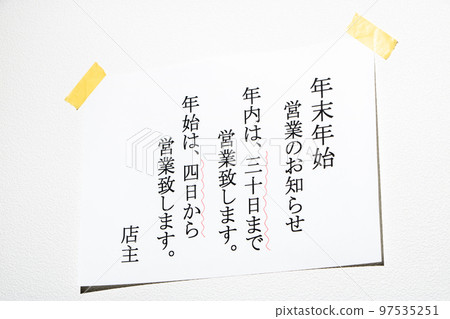 年末年始
営業のお知らせ
年内は、三十日まで
営業致します。
年始は、四日から
営業致します。
店主
PIXTA
97535251